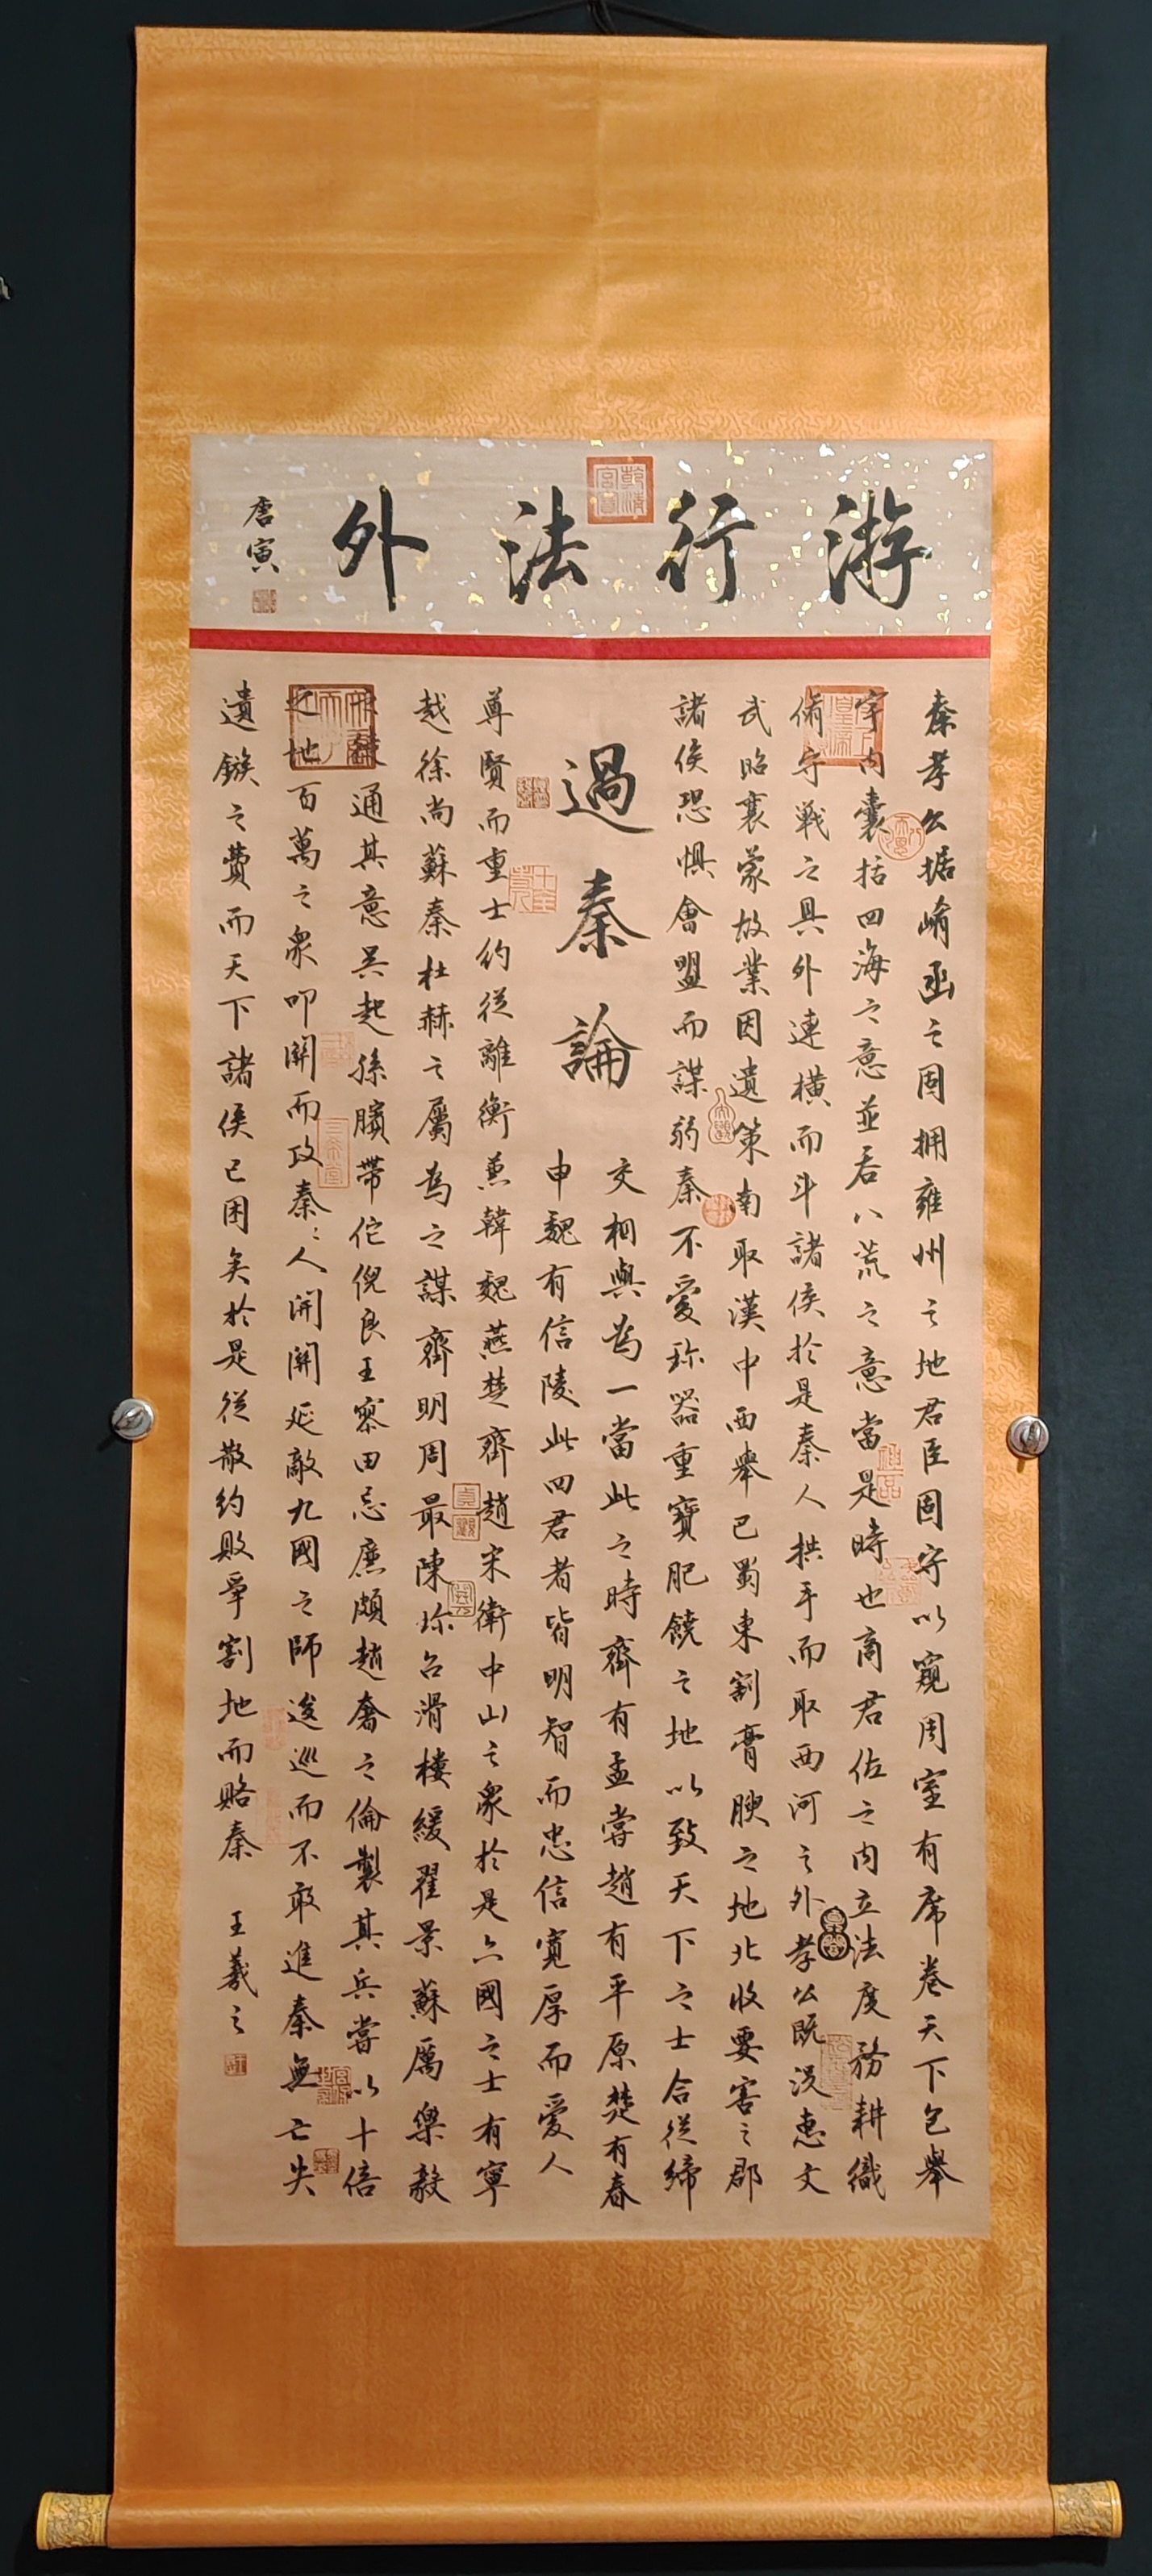 游行法外
唐寅
乾清宮寶
秦孝公据崤函之固拥雍州之地君臣固守以窺周室有席卷天下包舉
宇内囊括四海之意並吞八荒之意當是時也商君佐之内立法度務耕織
脩守戰之具外連橫而斗諸侯於是秦人拱手而取西河之外孝公既没惠文
武昭襄蒙故業因遺策南取漢中西舉巴蜀東割膏腴之地北收要害之郡
諸侯恐惧會盟而謀弱秦不愛珎器重寶肥饒之地以致天下之士合從締
過秦論
交相與為一當此之時齊有孟嘗趙有平原楚有春
申魏有信陵此四君者皆明智而忠信寬厚而愛人
尊賢而重士約從離衡兼韓魏燕楚齊趙宋衛中山之衆於是六國之士有寧
越徐尚蘇秦杜赫之屬為之謀齊明周最陳珎召滑樓緩翟景蘇厲樂毅
通其意吴起孫臏帶佗倪良王寮田忌廉頗趙奢之倫製其兵嘗以十倍
之地百萬之衆叩關而攻秦:人開關延敵九國之師逡巡而不敢進秦無亡失
遺鏃之費而天下諸侯已困矣於是從散約败爭割地而賂秦
王羲之
貞觀
三希堂